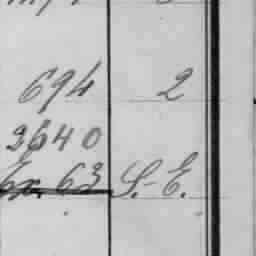 694 2
3640
Ex. 63 S.-E.